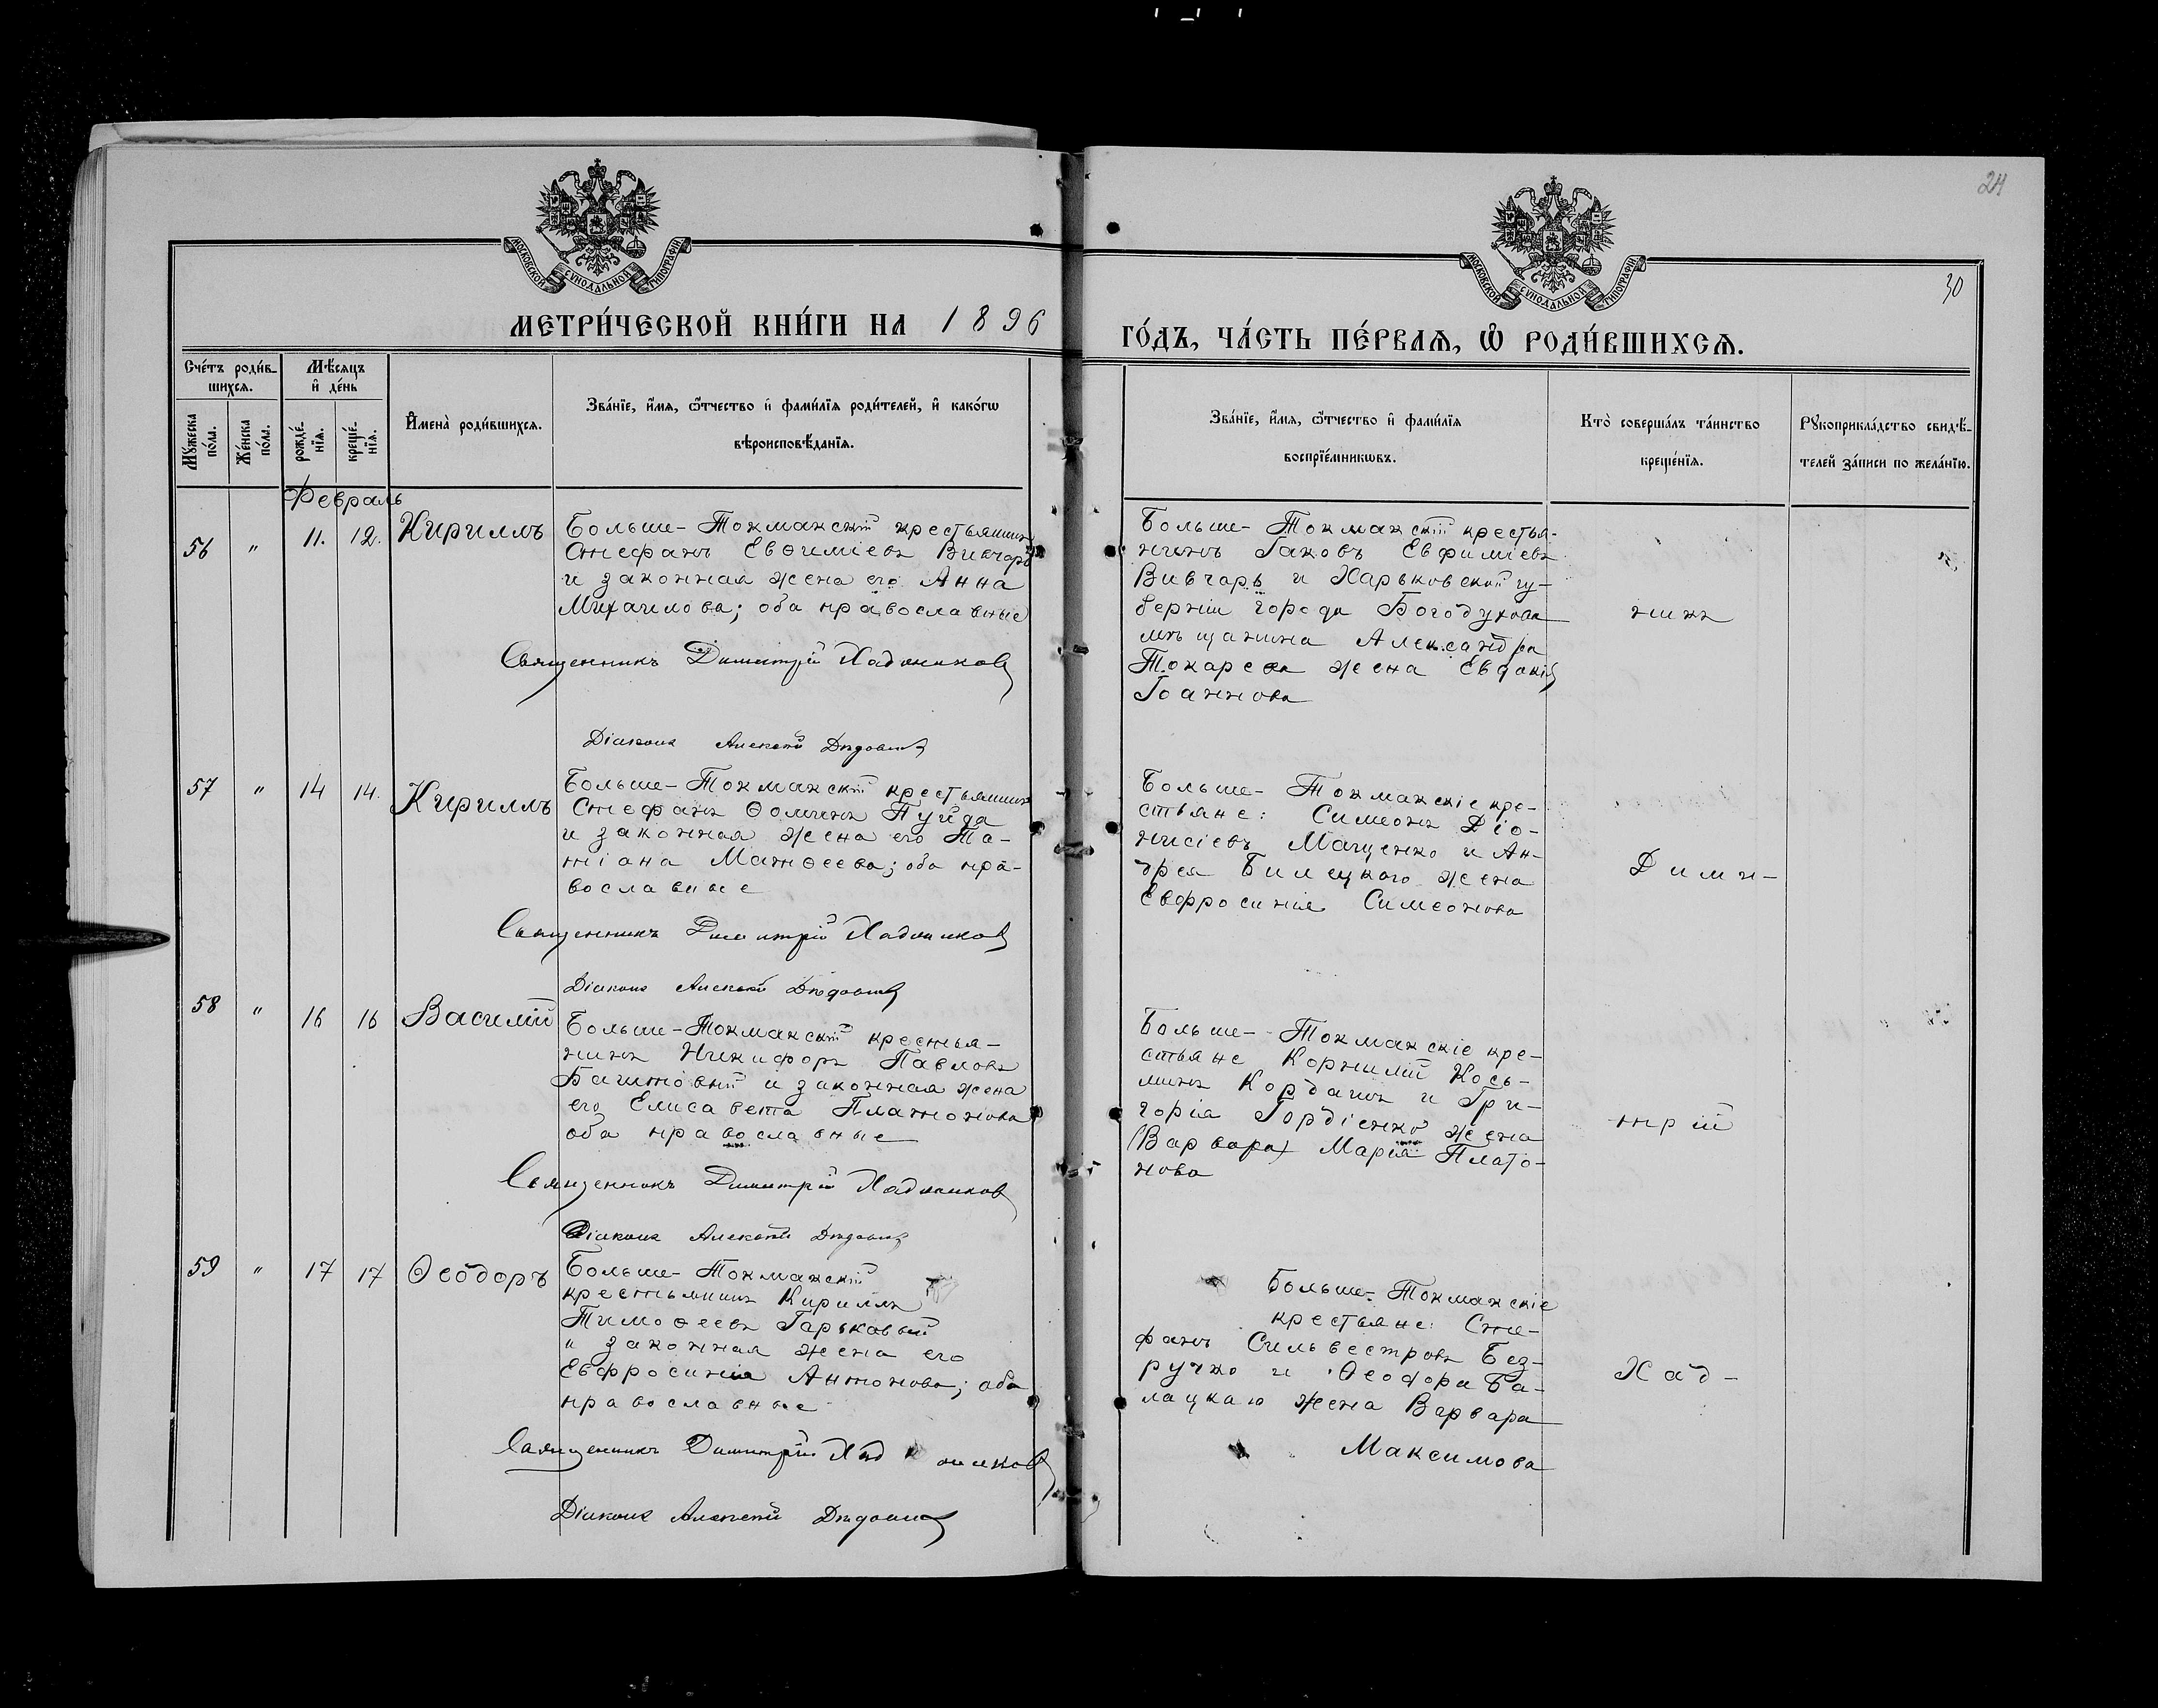 24
МОСКОВСКОЙ СУНОДАЛЬНОЙ ТИПОГРАФІИ
МОСКОВСКОЙ СУНОДАЛЬНОЙ ТИПОГРАФІИ
30
МЕТРИ́ЧЕСКОЙ КНИ́ГИ НА 1896
ГО́ДЪ, ЧА́СТЬ ПЕ́РВАѦ, Ѿ РОДИ́ВШИХСѦ.
Сче́тъ роди́в-
шихсѧ.
Мѣ́сѧцъ
и҆ де́нь
Мꙋ́жеска
по́ла.
Же́нска
по́ла.
рожде́-
нїѧ.
креще́-
нїѧ.
И҆мена̀ роди́вшихсѧ.
Зва́нїе, и҆́мѧ, ѻ҆́тчество и҆ фами́лїѧ роди́телей, и҆ како́гѡ
вѣроисповѣ́данїѧ.
Зва́нїе, и҆́мѧ, ѻ҆́тчество и҆ фами́лїѧ
воспрїе́мникѡвъ.
Кто̀ соверша́лъ та́инство
креще́нїѧ.
Рꙋкоприкла́дство свидѣ́-
телей за́писи по жела́нїю.
Февраль
56 " 11. 12. Кириллъ
Больше-Токмакскій крестьянинъ
Стефанъ Евѳиміевъ Вивчарь
и законная жена его Анна
Михаилова; оба православные
Священникъ Димитрій Хадожиковъ
Діаконъ Алексій
Больше-Токмакскій крестья-
нинъ Іаковъ Евфиміевъ
Вивчарь и Харьковской гу-
берніи города Богодухова
мѣщанина Александра
Токарева жена Евдокія
Іоаннова
никъ
57 " 14 14. Кириллъ
Больше-Токмакскій крестьянинъ
Стефанъ Ѳоминъ Пугда
и законная жена его Та-
тіана Матѳеева; оба пра-
вославные
Священникъ Димитрій
Діаконъ Алексій
Больше-Токмакскіе кре-
стьяне: Симеонъ Діо-
нисіевъ Мащенко и Ан-
дрея Билецкого жена
Евфросинія Симеонова
Дими-
58 " 16 16 Василій
Больше-Токмакскій крестья-
нинъ Никифоръ Павловъ
и законная жена
его Елисавета Платонова
оба православные
Священникъ Димитрій
Діаконъ Алексій
Больше-Токмакскіе кре-
стьяне Корнилій Кось-
минъ Корданъ и Гри-
горія Гордіенко жена
(Варвара) Марія Плато-
нова
трій
59 " 17 17 Ѳеодоръ
Больше-Токмакскій
крестьянинъ Кириллъ
Тимоѳеевъ Гарьковый
и законная жена его
Евфросинія Антонова; оба
православные
Священникъ Димитрій
Діаконъ Алексій
Больше-Токмакскіе
крестьяне: Сте-
фанъ Сильвестровъ Без-
ручко и Ѳеодора Ба-
лацкаго жена Варвара
Максимова
Хад-